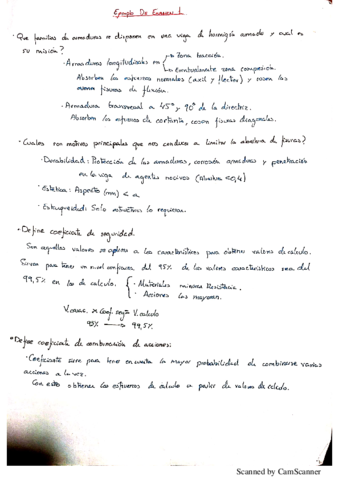 Ejemplo De Examen 1
· Que familias de armaduras se disponen en una viga de hormigón armado y cual es
su misión?
· Armaduras longitudinales en Zona tracción.
Eventualmente zona compresión.
Absorben los esfuerzos normales (axil y flector) y cosen las
fisuras de flexión.
· Armadura transversal a 45º y 90º de la directriz.
Absorben los esfuerzos de cortante, cosen fisuras diagonales.
· Cuales son motivos principales que nos conducen a limitar la abertura de fisuras?
· Durabilidad: Protección de las armaduras, corrosión armaduras y penetración
en la viga de agentes nocivos (Wmax <0,4)
· Estetica: Aspecto (mm) < a
· Estanqueidad: Si lo requiere.
· Define coeficiente de seguridad.
Son aquellos valores se aplican a los característicos para obtener valores de calculo.
Sirven para tener un nivel confianza del 95% de los valores característicos sea del
99,5% en los de calculo. · Materiales minora Resistencia.
· Acciones las mayoran.
V.carac. x Coef. seg = V. calculo
95% → 99,5%
* Define coeficiente de combinación de acciones:
· Coeficiente sirve para tener en cuenta la mayor probabilidad de combinarse varias
acciones a la vez.
Con esto obtienen los esfuerzos de calculo a partir de valores de calculo.
Scanned by CamScanner